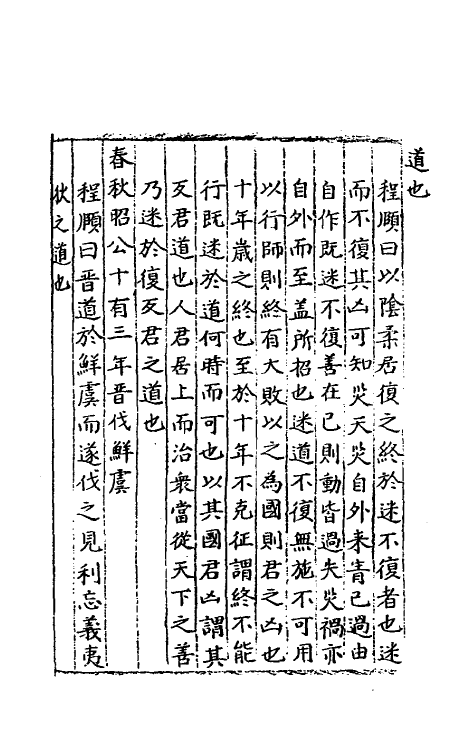 道也
程頤曰以陰柔居復之終於迷不復者也迷
而不復其凶可知災天災自外来眚已過由
自作既迷不復善在已則動皆過失災禍亦
自外而至盖所招也迷道不復無施不可用
以行師則終有大敗以之為國則君之凶也
十年歳之終也至於十年不克征謂終不能
行既迷於道何時而可也以其國君凶謂其
反君道也人君居上而治衆當從天下之善
乃迷於復反君之道也
春秋昭公十有三年晉伐鮮虞
程頤曰晉道於鮮虞而遂伐之見利忘義夷
狄之道也